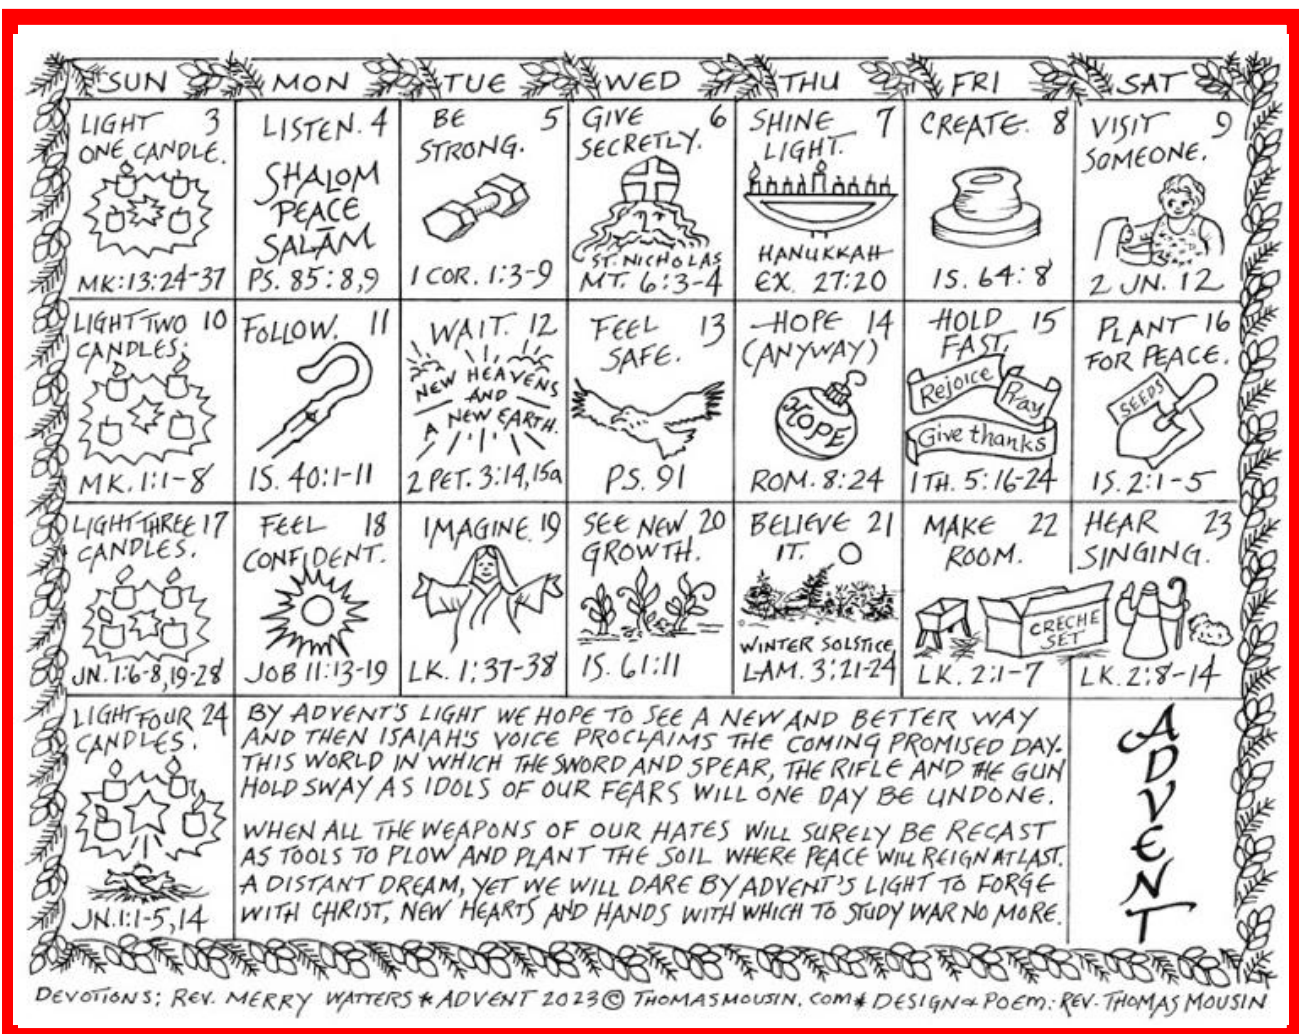 SUN MON TUE WED THU FRI SAT
LIGHT 3
ONE CANDLE.
MK:13:24-37
LISTEN. 4
SHALOM
PEACE
SALĀM
PS. 85:8,9
BE 5
STRONG.
1 COR. 1:3-9
GIVE 6
SECRETLY.
ST. NICHOLAS
MT. 6:3-4
SHINE 7
LIGHT.
HANUKKAH
EX. 27:20
CREATE. 8
IS. 64:8
VISIT 9
SOMEONE.
2 JN. 12
LIGHT TWO 10
CANDLES.
MK. 1:1-8
FOLLOW. 11
IS. 40:1-11
WAIT. 12
NEW HEAVENS
AND
A NEW EARTH.
2 PET. 3:14,15a
FEEL 13
SAFE.
PS. 91
HOPE 14
(ANYWAY)
HOPE
ROM. 8:24
HOLD 15
FAST.
Rejoice
Pray
Give thanks
1 TH. 5:16-24
PLANT 16
FOR PEACE.
SEEDS
IS. 2:1-5
LIGHT THREE 17
CANDLES.
JN. 1:6-8,19-28
FEEL 18
CONFIDENT.
JOB 11:13-19
IMAGINE. 19
LK. 1:37-38
SEE NEW 20
GROWTH.
IS. 61:11
BELIEVE 21
IT.
WINTER SOLSTICE
LAM. 3:21-24
MAKE 22
ROOM.
CRECHE
SET
LK. 2:1-7
HEAR 23
SINGING.
LK. 2:8-14
LIGHT FOUR 24
CANDLES.
JN. 1:1-5,14
BY ADVENT'S LIGHT WE HOPE TO SEE A NEW AND BETTER WAY
AND THEN ISAIAH'S VOICE PROCLAIMS THE COMING PROMISED DAY.
THIS WORLD IN WHICH THE SWORD AND SPEAR, THE RIFLE AND THE GUN
HOLD SWAY AS IDOLS OF OUR FEARS WILL ONE DAY BE UNDONE.
WHEN ALL THE WEAPONS OF OUR HATES WILL SURELY BE RECAST
AS TOOLS TO PLOW AND PLANT THE SOIL WHERE PEACE WILL REIGN AT LAST.
A DISTANT DREAM, YET WE WILL DARE BY ADVENT'S LIGHT TO FORGE
WITH CHRIST, NEW HEARTS AND HANDS WITH WHICH TO STUDY WAR NO MORE.
ADVENT
DEVOTIONS: REV. MERRY WATTERS * ADVENT 2023 © THOMASMOUSIN.COM * DESIGN & POEM: REV. THOMAS MOUSIN